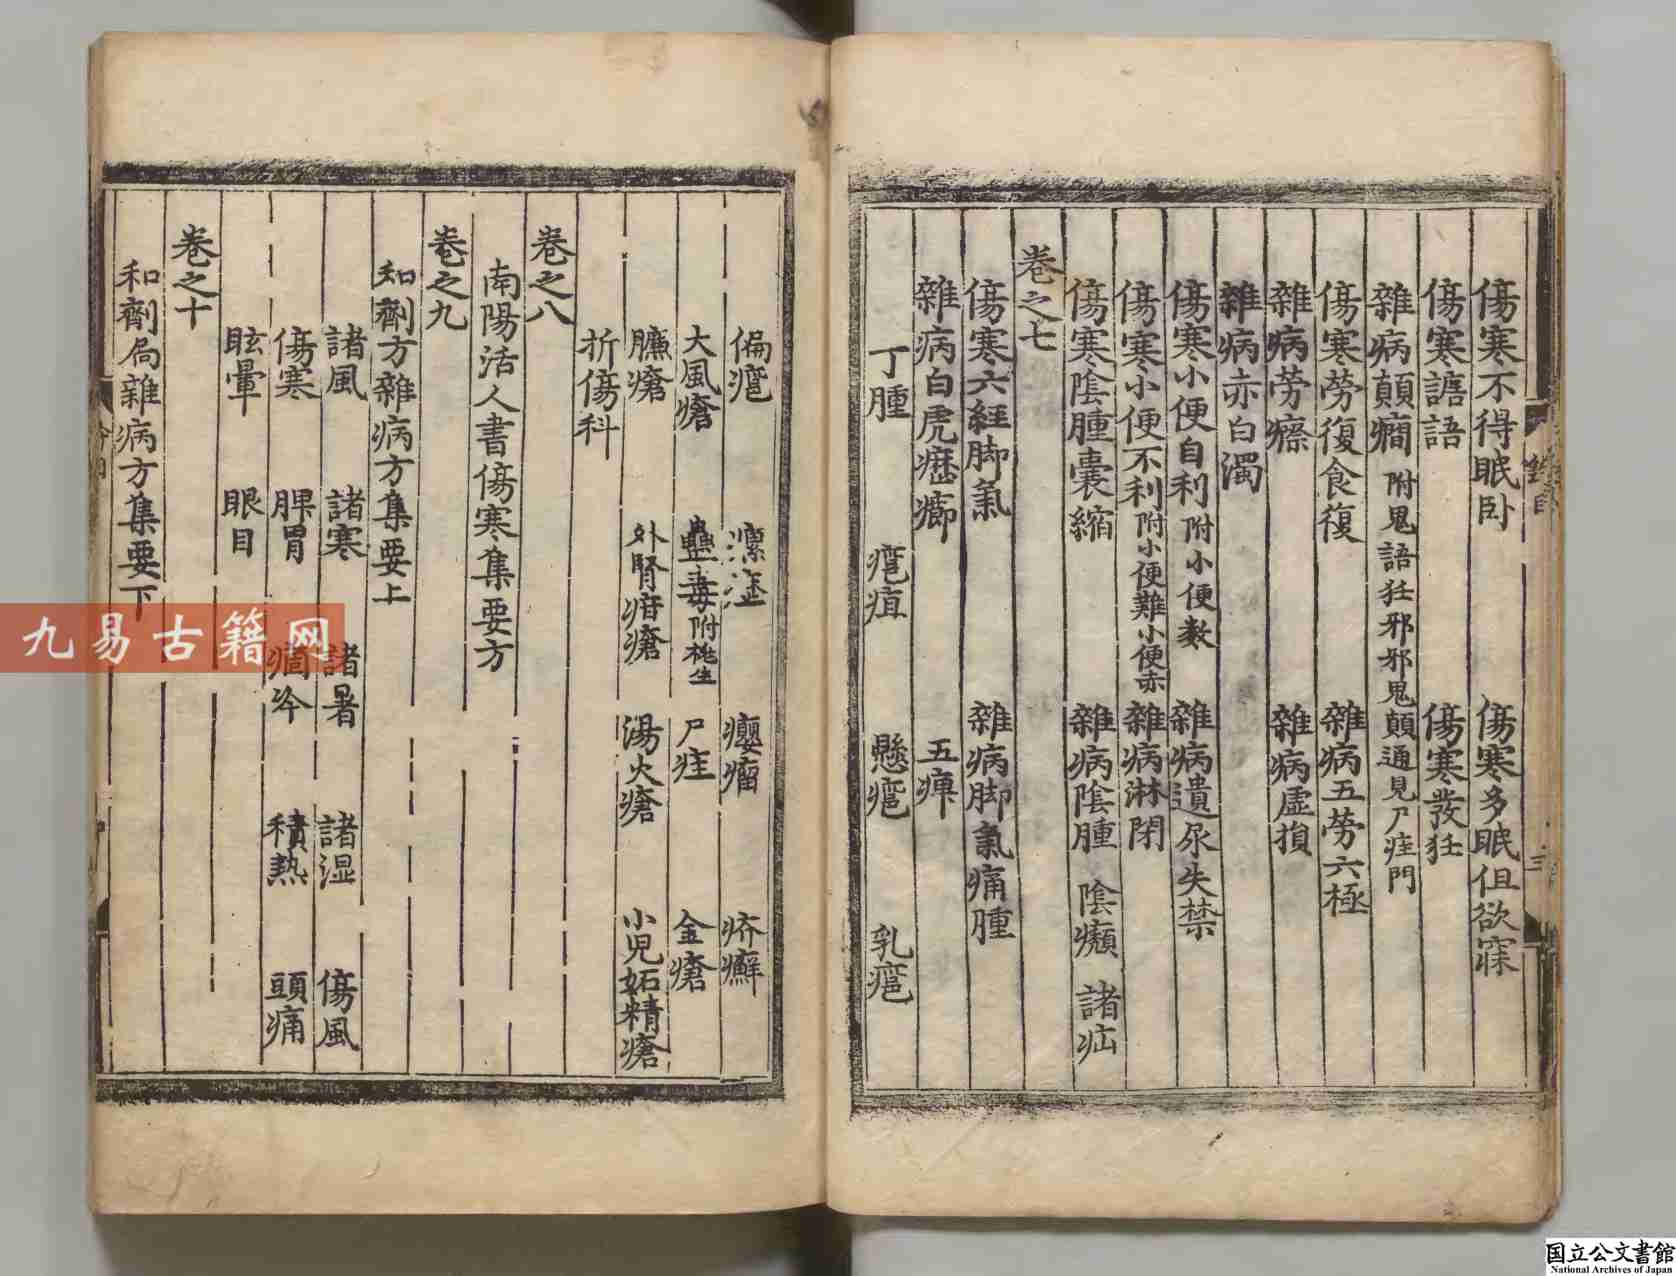 傷寒不得眠卧　傷寒多眠但欲寐
傷寒譫語　傷寒發狂
雜病顛癎附鬼語狂邪邪鬼顛通見尸疰門
傷寒勞復食復　雜病五勞六極
雜病勞瘵　雜病虛損
雜病赤白濁
傷寒小便自利附小便數　雜病遺尿失禁
傷寒小便不利附小便難小便赤　雜病淋閉
傷寒陰腫囊縮　雜病陰腫　陰㿗　諸疝
卷之七
傷寒六經脚氣　雜病脚氣痛腫
雜病白虎癧癤　五痺
丁腫　癰疽　懸癰　乳癰
偏癰　瘰　癭瘤　疥癬
大風瘡　蠱毒附挑生　尸疰　金瘡
臁瘡　外腎瘖瘡　湯火瘡　小兒妬精瘡
折傷科
卷之八
南陽活人書傷寒集要方
卷之九
和劑方雜病方集要上
諸風　諸寒　諸暑　諸湿　傷風
傷寒　脾胃　痼冷　積熱　頭痛
眩暈　眼目
卷之十
和劑局雜病方集要下
九易古籍网
国立公文書館
National Archives of Japan